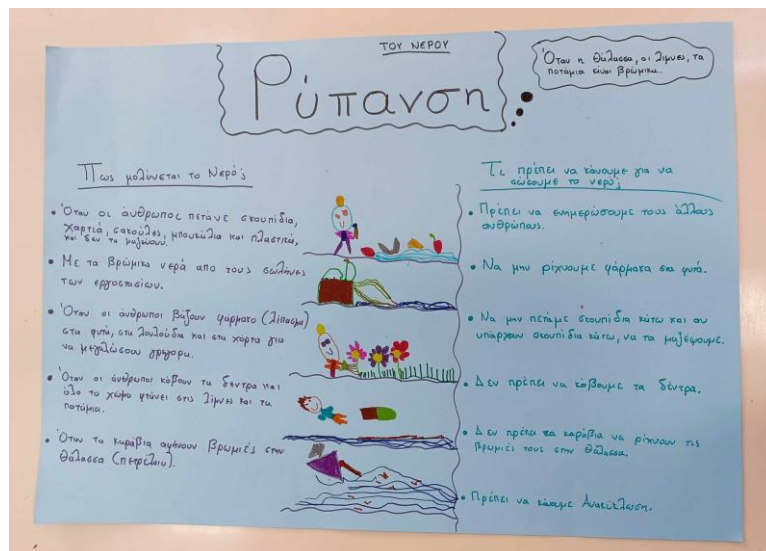 ΤΟΥ ΝΕΡΟΥ
Ρύπανση
Όταν η θάλασσα, οι λίμνες, τα
ποτάμια είναι βρώμικα..
Πως μολύνεται το Νερό;
• Όταν οι άνθρωποι πετάνε σκουπίδια,
χαρτιά, σακούλες, μπουκάλια και πλαστικά,
και δεν τα μαζεύουν.
• Με τα βρώμικα νερά απο τους σωλήνες
των εργοστασίων.
• Όταν οι άνθρωποι βάζουν φάρμακο (λίπασμα)
στα φυτά, στα λουλούδια και στα χόρτα για
να μεγαλώσουν γρήγορα.
• Όταν οι άνθρωποι κόβουν τα δέντρα και
όλο το χώμα φτάνει στις λίμνες και τα
ποτάμια.
• Όταν τα καράβια αφήνουν βρωμιές στην
θάλασσα (πετρέλαιο).
Τι πρέπει να κάνουμε για να
σώσουμε το νερό;
• Πρέπει να ενημερώσουμε τους άλλους
ανθρώπους.
• Να μην ρίχνουμε φάρματα στα φυτά.
• Να μην πετάμε σκουπίδια κάτω και αν
υπάρχουν σκουπίδια κάτω, να τα μαζέψουμε.
• Δεν πρέπει να κόβουμε τα δέντρα.
• Δεν πρέπει τα καράβια να ρίχνουν τις
βρωμιές τους στην θάλασσα.
• Πρέπει να κάνουμε Ανακύκλωση.